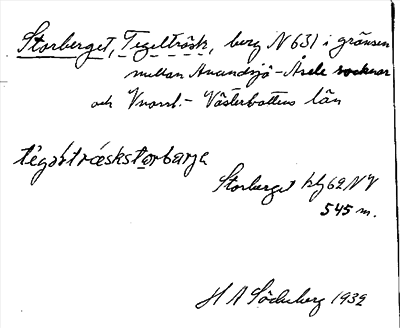 Storberget, Tegelträsk, berg N 631 i gränsen
mellan Anundsjö-Åsele socknar
och Vnorrl.- Västerbottens län
tégəlträskstorbarja
Storberget hfg 62 NV
545 m.
H A Söderberg 1932